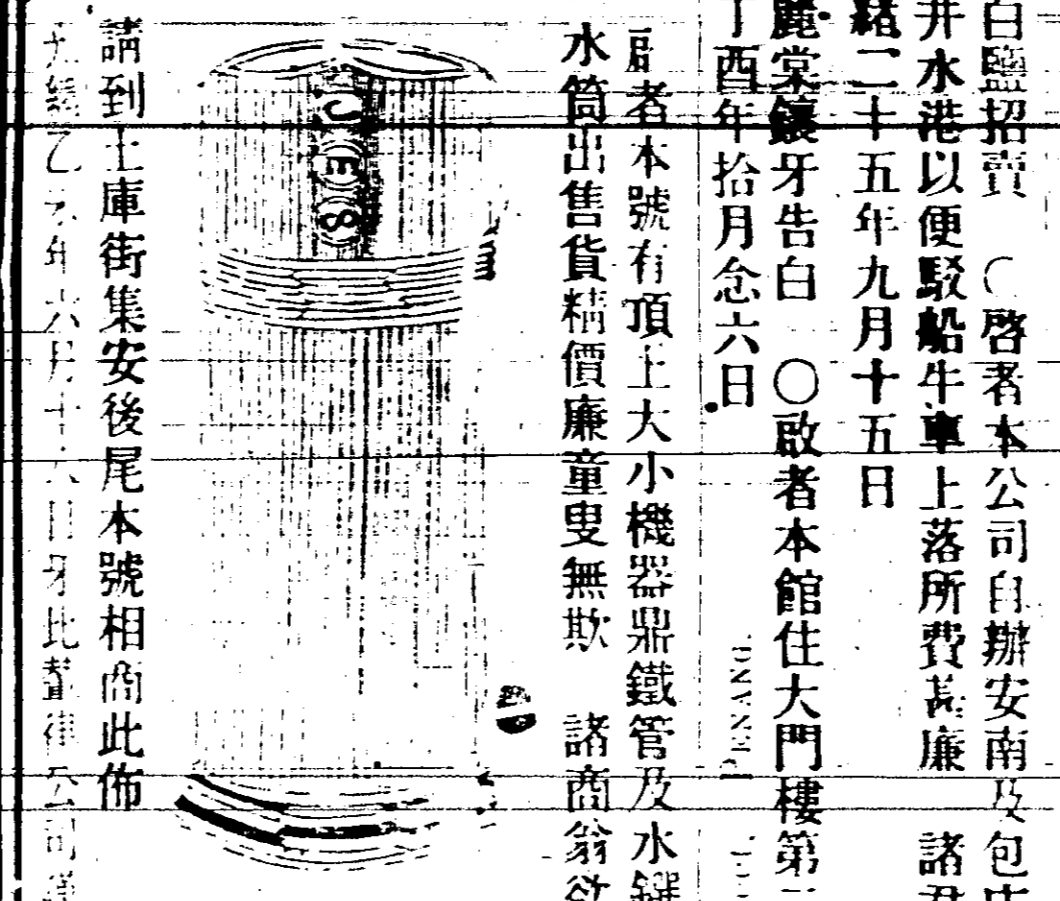 白鹽招賣 啓者本公司自辦安南及包
井水港以便駁船牛車上落所費甚廉 諸君
緒二十五年九月十五日
麗棠鑲牙告白 〇啟者本館住大門樓第
丁酉年拾月念六日
PENANG
啟者本號有頂上大小機器鼎鐵管及水
水筒出售貨精價廉童叟無欺 諸商翁欲
J E S
請到土庫街集安後尾本號相商此佈
年六月十六日